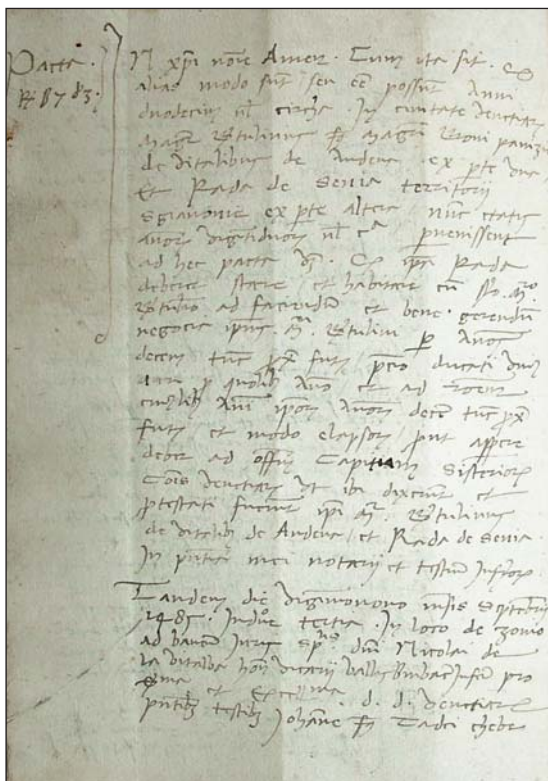 Pacta.
N xpi noie Amen. Cum ita sit. q
alias modo sunt seu ee possunt Anni
duodecim vl circha. In civitate Venetiar
magr Rtulinus fq magri Roni
de Vitalibus de Andena. ex pte una
Et Rada de Senia territorii
Sgiavonie ex pte altera nunc etatis
annor vigintiduor vl ca pvenissent
ad hec pacta vz. q ipa Rada
deberet stare et habitare cu mro
Rtulino ad faciendu et bene gerendu
negocia ipius m. Rtulini p Annos
decem tunc px futur pcio ducati unius
auri p quolib Ano et ad
cuiuslib Ani ipor Annor dece tunc px
futur et modo elapsor prout appere
debet ad offm Capitum Sisterior
Cois Venetiar ut ibi dixerunt et
ptestati fuerunt ipi m. Rtulinus
de Vitalib de Andena et Rada de Senia.
In pntia mei notarii et testium infror
Tandem die vigimonono msis Septebris
1485. Indne tertia. In loco de Zonio
ad bancum Iuris sp.lis dni Nicolai de
la Vitalba hon vicarii Vallis Brebane Infer pro
et Ex.ma d. d. Venetiar
pntib testib Johane fq Tadei